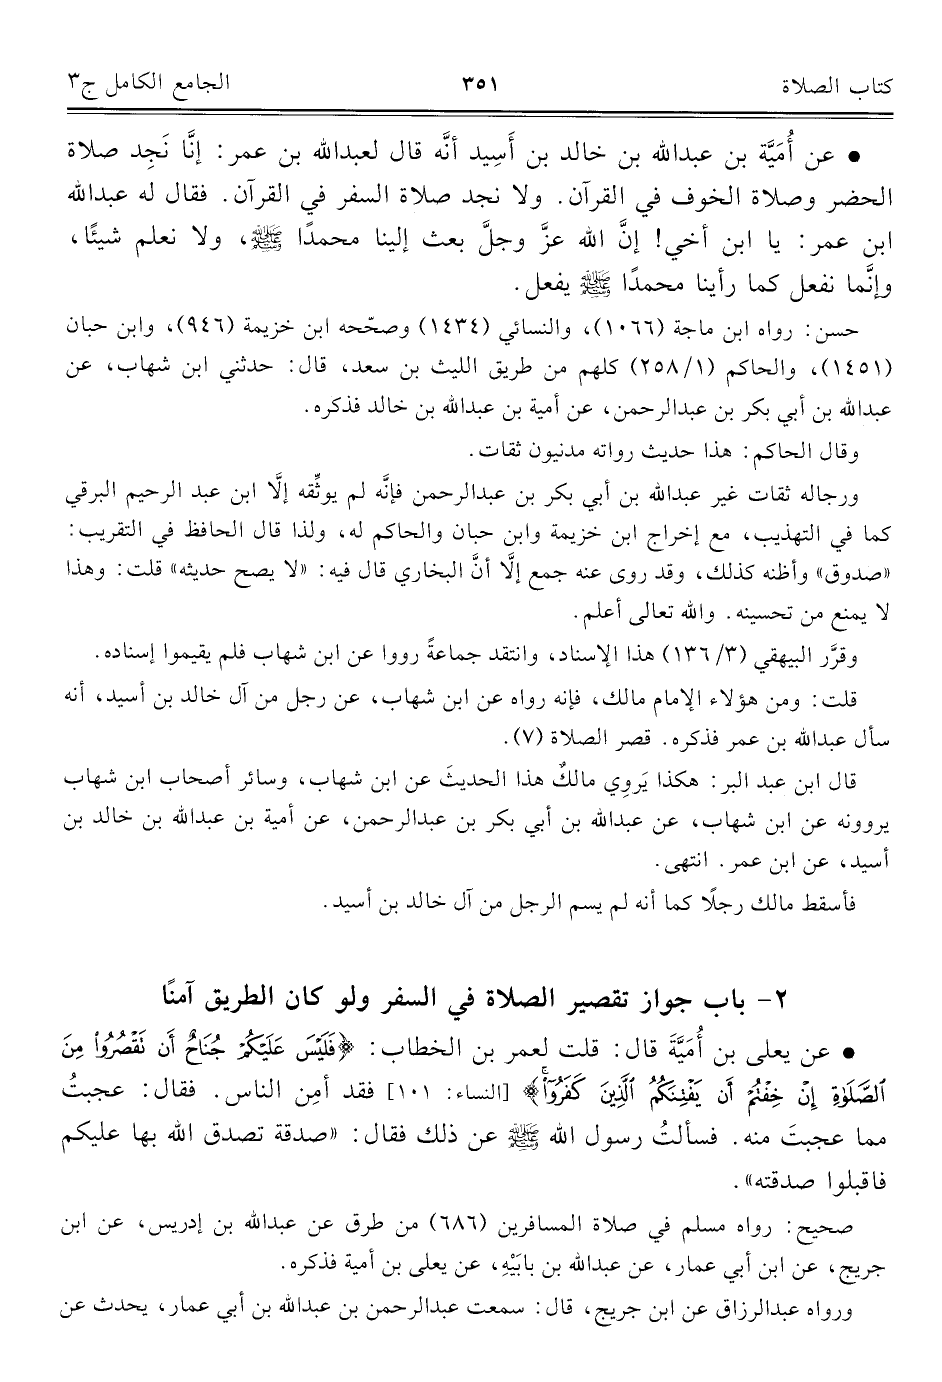 كتاب الصلاة ٣٥١ الجامع الكامل ج٣
● عن أُمَيَّة بن عبدالله بن خالد بن أَسِيد أنَّه قال لعبدالله بن عمر: إنَّا نَجِد صلاة
الحضر وصلاة الخوف في القرآن. ولا نجد صلاة السفر في القرآن. فقال له عبدالله
ابن عمر: يا ابن أخي! إنَّ الله عزَّ وجلَّ بعث إلينا محمدًا ﷺ، ولا نعلم شيئًا،
وإنَّما نفعل كما رأينا محمدًا ﷺ يفعل.
حسن: رواه ابن ماجة (١٠٦٦)، والنسائي (١٤٣٤) وصحّحه ابن خزيمة (٩٤٦)، وابن حبان
(١٤٥١)، والحاكم (٢٥٨/١) كلهم من طريق الليث بن سعد، قال: حدثني ابن شهاب، عن
عبدالله بن أبي بكر بن عبدالرحمن، عن أمية بن عبدالله بن خالد فذكره.
وقال الحاكم: هذا حديث رواته مدنيون ثقات.
ورجاله ثقات غير عبدالله بن أبي بكر بن عبدالرحمن فإنَّه لم يوثِّقه إلَّا ابن عبد الرحيم البرقي
كما في التهذيب، مع إخراج ابن خزيمة وابن حبان والحاكم له، ولذا قال الحافظ في التقريب:
«صدوق» وأظنه كذلك، وقد روى عنه جمع إلَّا أنَّ البخاري قال فيه: «لا يصح حديثه» قلت: وهذا
لا يمنع من تحسينه. والله تعالى أعلم.
وقرَّر البيهقي (١٣٦/٣) هذا الإسناد، وانتقد جماعةً رووا عن ابن شهاب فلم يقيموا إسناده.
قلت: ومن هؤلاء الإمام مالك، فإنه رواه عن ابن شهاب، عن رجل من آل خالد بن أسيد، أنه
سأل عبدالله بن عمر فذكره. قصر الصلاة (٧).
قال ابن عبد البر: هكذا يَروِي مالكٌ هذا الحديثَ عن ابن شهاب، وسائر أصحاب ابن شهاب
يروونه عن ابن شهاب، عن عبدالله بن أبي بكر بن عبدالرحمن، عن أمية بن عبدالله بن خالد بن
أسيد، عن ابن عمر. انتهى.
فأسقط مالك رجلًا كما أنه لم يسم الرجل من آل خالد بن أسيد.
٢- باب جواز تقصير الصلاة في السفر ولو كان الطريق آمنًا
● عن يعلى بن أُمَيَّةَ قال: قلت لعمر بن الخطاب: ﴿فَلَيْسَ عَلَيْكُمْ جُنَاحٌ أَن تَقْصُرُوا۟ مِنَ
ٱلصَّلَوٰةِ إِنْ خِفْتُمْ أَن يَفْتِنَكُمُ ٱلَّذِينَ كَفَرُوٓا۟ۚ﴾ [النساء: ١٠١] فقد أمِن الناس. فقال: عجبتُ
مما عجبتَ منه. فسألتُ رسول الله ﷺ عن ذلك فقال: «صدقة تصدق الله بها عليكم
فاقبلوا صدقته».
صحيح: رواه مسلم في صلاة المسافرين (٦٨٦) من طرق عن عبدالله بن إدريس، عن ابن
جريج، عن ابن أبي عمار، عن عبدالله بن بابَيْهِ، عن يعلى بن أمية فذكره.
ورواه عبدالرزاق عن ابن جريج، قال: سمعت عبدالرحمن بن عبدالله بن أبي عمار، يحدث عن